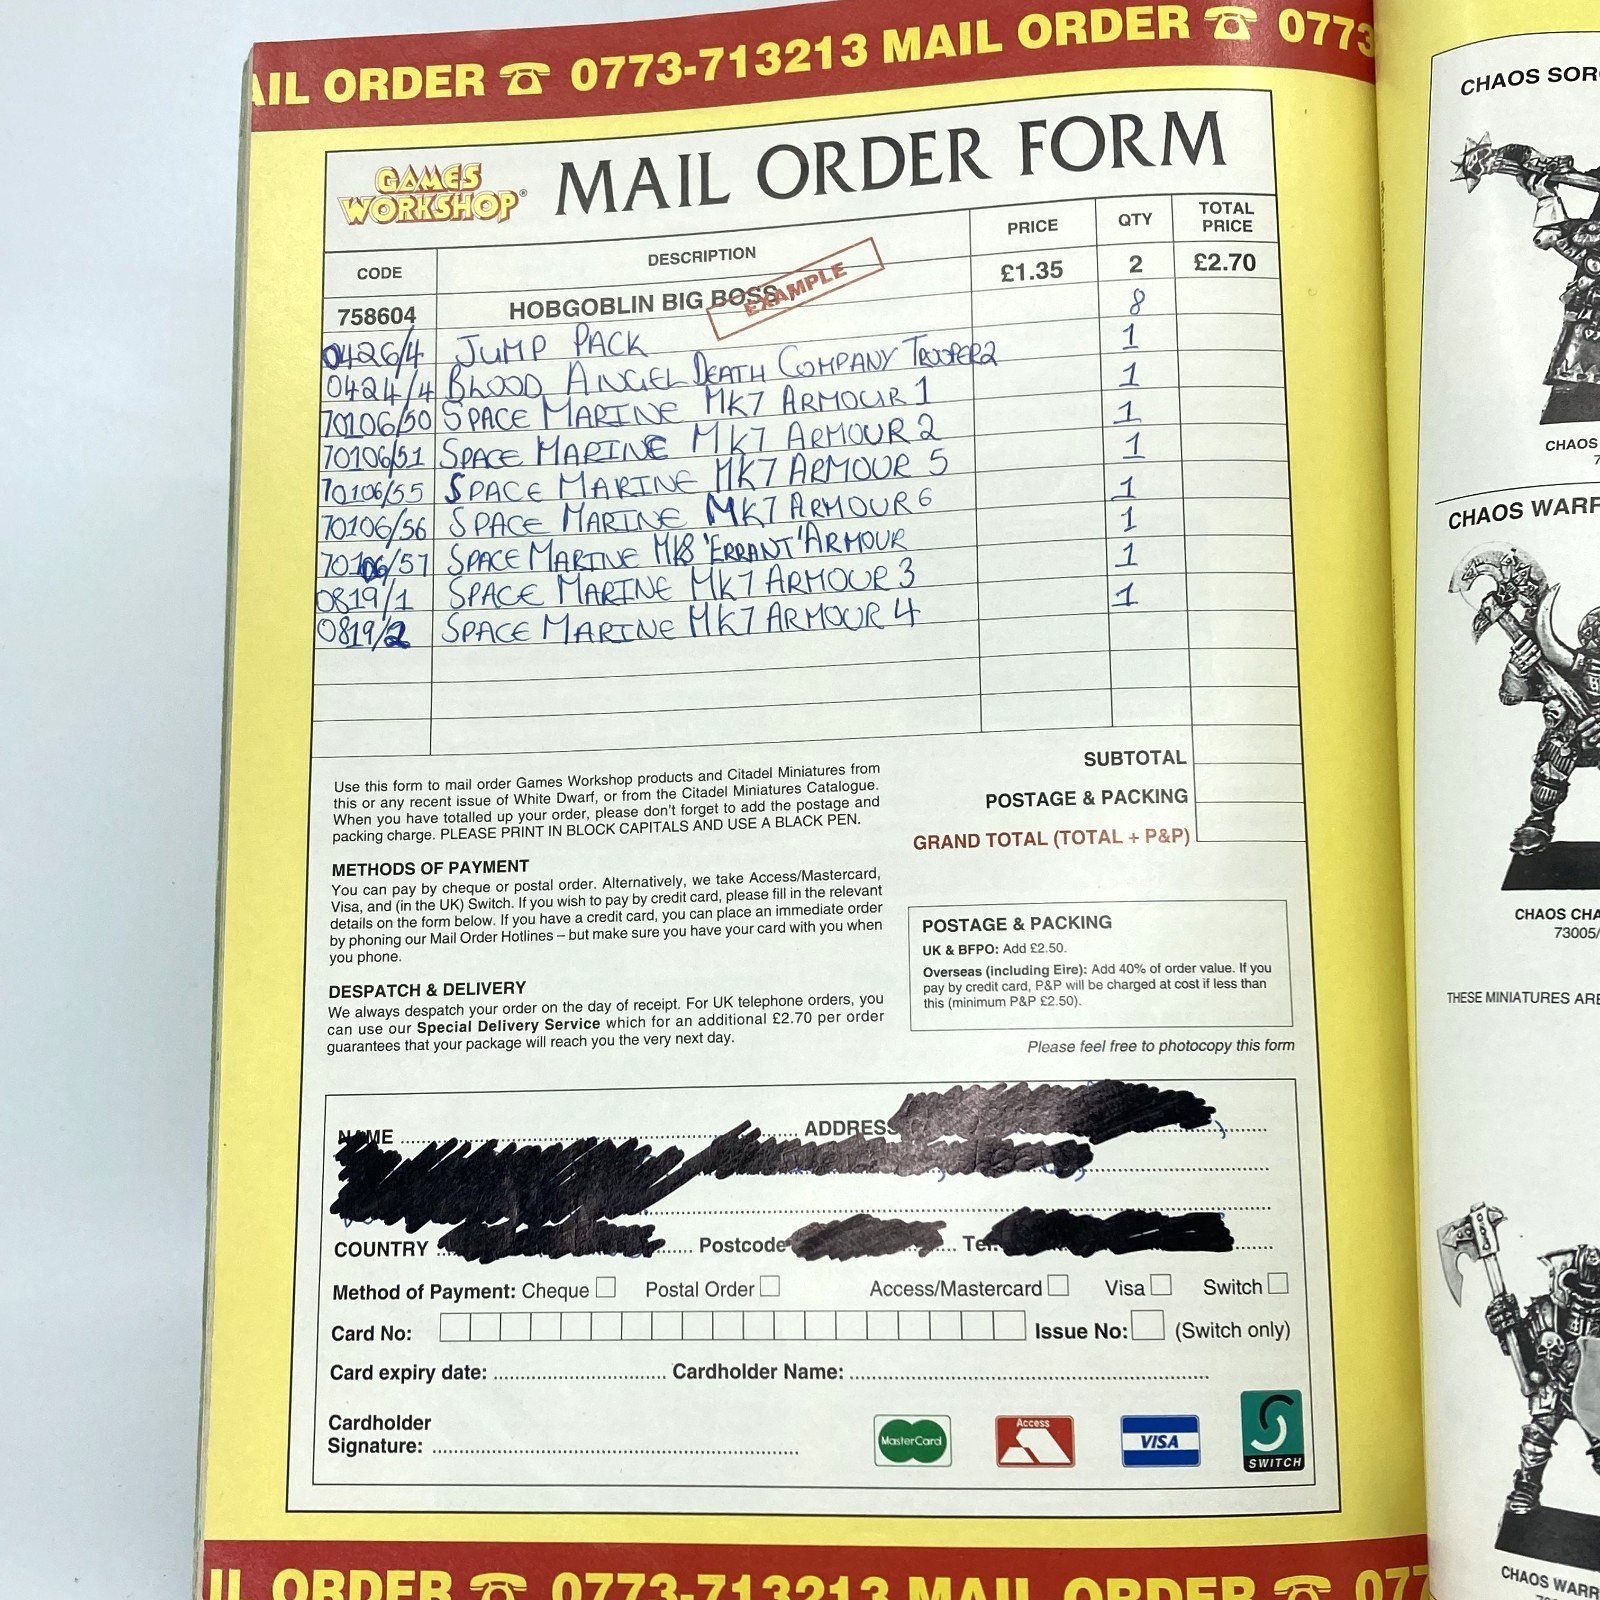 AIL ORDER ☎ 0773-713213 MAIL ORDER ☎ 0773
GAMES WORKSHOP®
MAIL ORDER FORM
CODE DESCRIPTION PRICE QTY TOTAL PRICE
758604 HOBGOBLIN BIG BOSS EXAMPLE £1.35 2 £2.70
0426/4 JUMP PACK 8
0424/4 BLOOD ANGEL DEATH COMPANY TROOPER2 1
70106/50 SPACE MARINE MK7 ARMOUR 1 1
70106/51 SPACE MARINE MK7 ARMOUR 2 1
70106/55 SPACE MARINE MK7 ARMOUR 5 1
70106/56 SPACE MARINE MK7 ARMOUR 6 1
70106/57 SPACE MARINE MK8 'ERRANT' ARMOUR 1
0819/1 SPACE MARINE MK7 ARMOUR 3 1
0819/2 SPACE MARINE MK7 ARMOUR 4 1
SUBTOTAL
POSTAGE & PACKING
GRAND TOTAL (TOTAL + P&P)
Use this form to mail order Games Workshop products and Citadel Miniatures from
this or any recent issue of White Dwarf, or from the Citadel Miniatures Catalogue.
When you have totalled up your order, please don't forget to add the postage and
packing charge. PLEASE PRINT IN BLOCK CAPITALS AND USE A BLACK PEN.
METHODS OF PAYMENT
You can pay by cheque or postal order. Alternatively, we take Access/Mastercard,
Visa, and (in the UK) Switch. If you wish to pay by credit card, please fill in the relevant
details on the form below. If you have a credit card, you can place an immediate order
by phoning our Mail Order Hotlines – but make sure you have your card with you when
you phone.
DESPATCH & DELIVERY
We always despatch your order on the day of receipt. For UK telephone orders, you
can use our Special Delivery Service which for an additional £2.70 per order
guarantees that your package will reach you the very next day.
POSTAGE & PACKING
UK & BFPO: Add £2.50.
Overseas (including Eire): Add 40% of order value. If you
pay by credit card, P&P will be charged at cost if less than
this (minimum P&P £2.50).
Please feel free to photocopy this form
NAME ADDRESS
COUNTRY Postcode Tel.
Method of Payment: Cheque Postal Order Access/Mastercard Visa Switch
Card No: Issue No: (Switch only)
Card expiry date: Cardholder Name:
Cardholder
Signature:
MasterCard
Access
VISA
SWITCH
IL ORDER ☎ 0773-713213 MAIL ORDER ☎ 077
CHAOS SOR
CHAOS
7
CHAOS WARR
CHAOS CHA
73005/
THESE MINIATURES ARE
CHAOS WARR